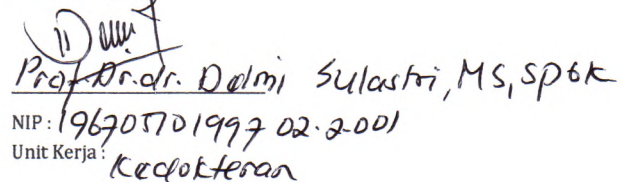 Prof. Dr. dr. Delmi Sulastri, MS, SpGK
NIP : 19670570 1997 02.2.001
Unit Kerja : Kedokteran